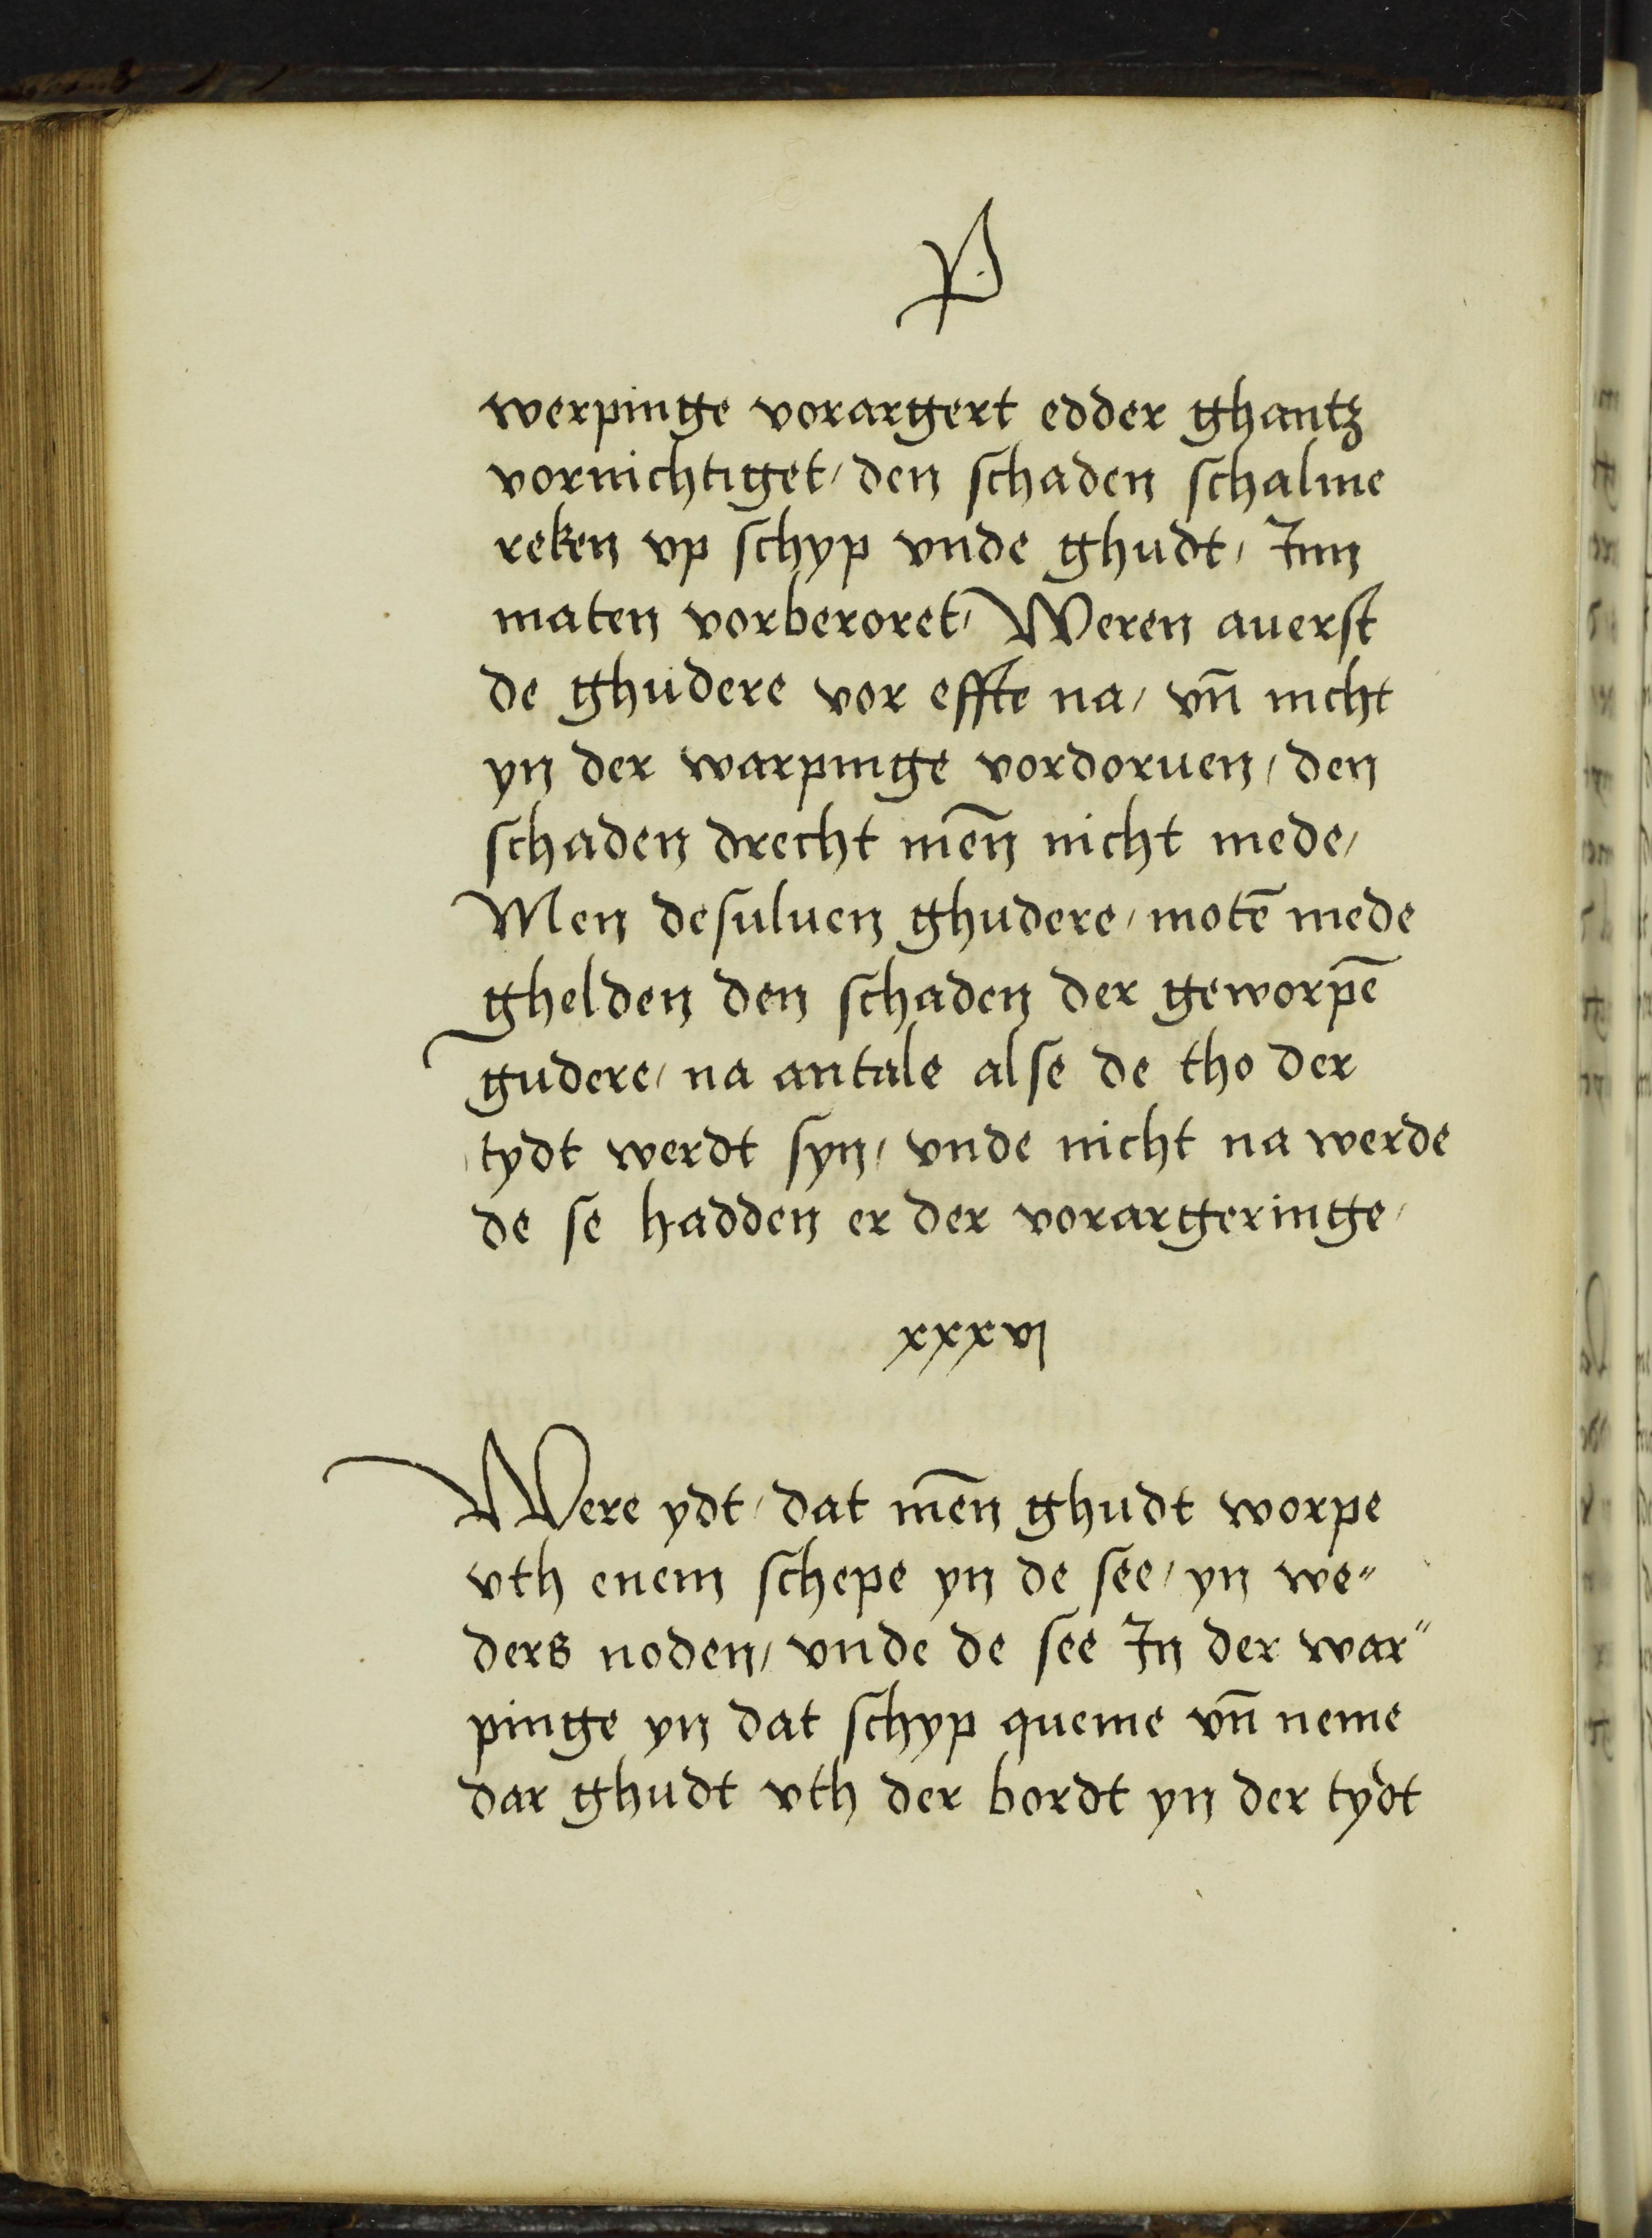 P
werpinge vorargert edder ghantz
vornichtiget/ den schaden schalme
reken vp schyp vnde ghudt/ Inn
maten vorberoret/ Weren auerst
de ghudere vor effte na/ vn̄ nicht
yn der warpinge vordoruen/ den
schaden drecht mēn nicht mede/
Men desuluen ghudere/ motē mede
ghelden den schaden der geworpē
gudere/ na antale alse de tho der
tydt werdt syn/ vnde nicht na werde
de se hadden er der vorargeringe/
xxxvi
Were ydt/ dat mēn ghudt worpe
vth enem schepe yn de see/ yn we„
ders noden/ vnde de see In der war„
pinge yn dat schyp queme vn̄ neme
dar ghudt vth der bordt yn der tydt